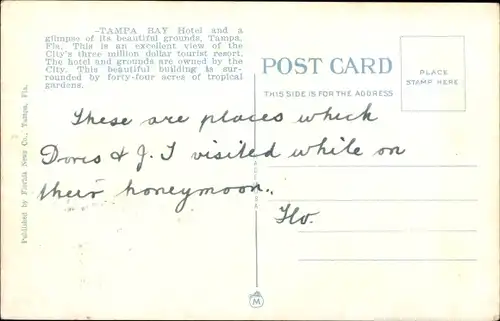 —TAMPA BAY Hotel and a
glimpse of its beautiful grounds, Tampa,
Fla. This is an excellent view of the
City's three million dollar tourist resort.
The hotel and grounds are owned by the
City. This beautiful building is sur-
rounded by forty-four acres of tropical
gardens.
POST CARD
THIS SIDE IS FOR THE ADDRESS
PLACE
STAMP HERE
Published by Florida News Co., Tampa, Fla.
These are places which
Doris & J. T visited while on
their honeymoon.
Flo.
M